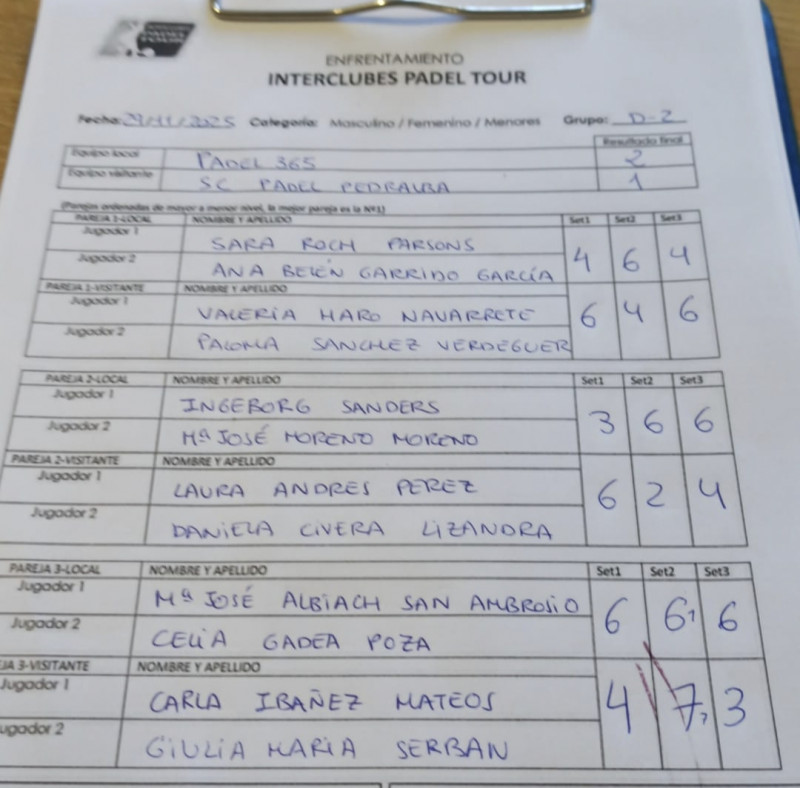 PADEL TOUR
ENFRENTAMIENTO
INTERCLUBES PADEL TOUR
Fecha: 29/11/2025 Categoría: Masculino / Femenino / Menores Grupo: D-2
Resultado final
Equipo local PADEL 365 2
Equipo visitante SC PADEL PEDRALBA 1
(Parejas ordenadas de mayor a menor nivel, la mejor pareja es la Nº1)
PAREJA 1-LOCAL NOMBRE Y APELLIDO Set1 Set2 Set3
Jugador 1 SARA ROCH PARSONS
4 6 4
Jugador 2 ANA BELÉN GARRIDO GARCÍA
PAREJA 1-VISITANTE NOMBRE Y APELLIDO
Jugador 1 VALERIA HARO NAVARRETE
6 4 6
Jugador 2 PALOMA SANCHEZ VERDEGUER
PAREJA 2-LOCAL NOMBRE Y APELLIDO Set1 Set2 Set3
Jugador 1 INGEBORG SANDERS
3 6 6
Jugador 2 Mª JOSÉ MORENO MORENO
PAREJA 2-VISITANTE NOMBRE Y APELLIDO
Jugador 1 LAURA ANDRES PEREZ
6 2 4
Jugador 2 DANIELA CIVERA LIZANDRA
PAREJA 3-LOCAL NOMBRE Y APELLIDO Set1 Set2 Set3
Jugador 1 Mª JOSÉ ALBIACH SAN AMBROSIO
6 6, 6
Jugador 2 CELIA GADEA POZA
JA 3-VISITANTE NOMBRE Y APELLIDO
Jugador 1 CARLA IBAÑEZ MATEOS
4 7, 3
ugador 2 GIULIA MARIA SERBAN